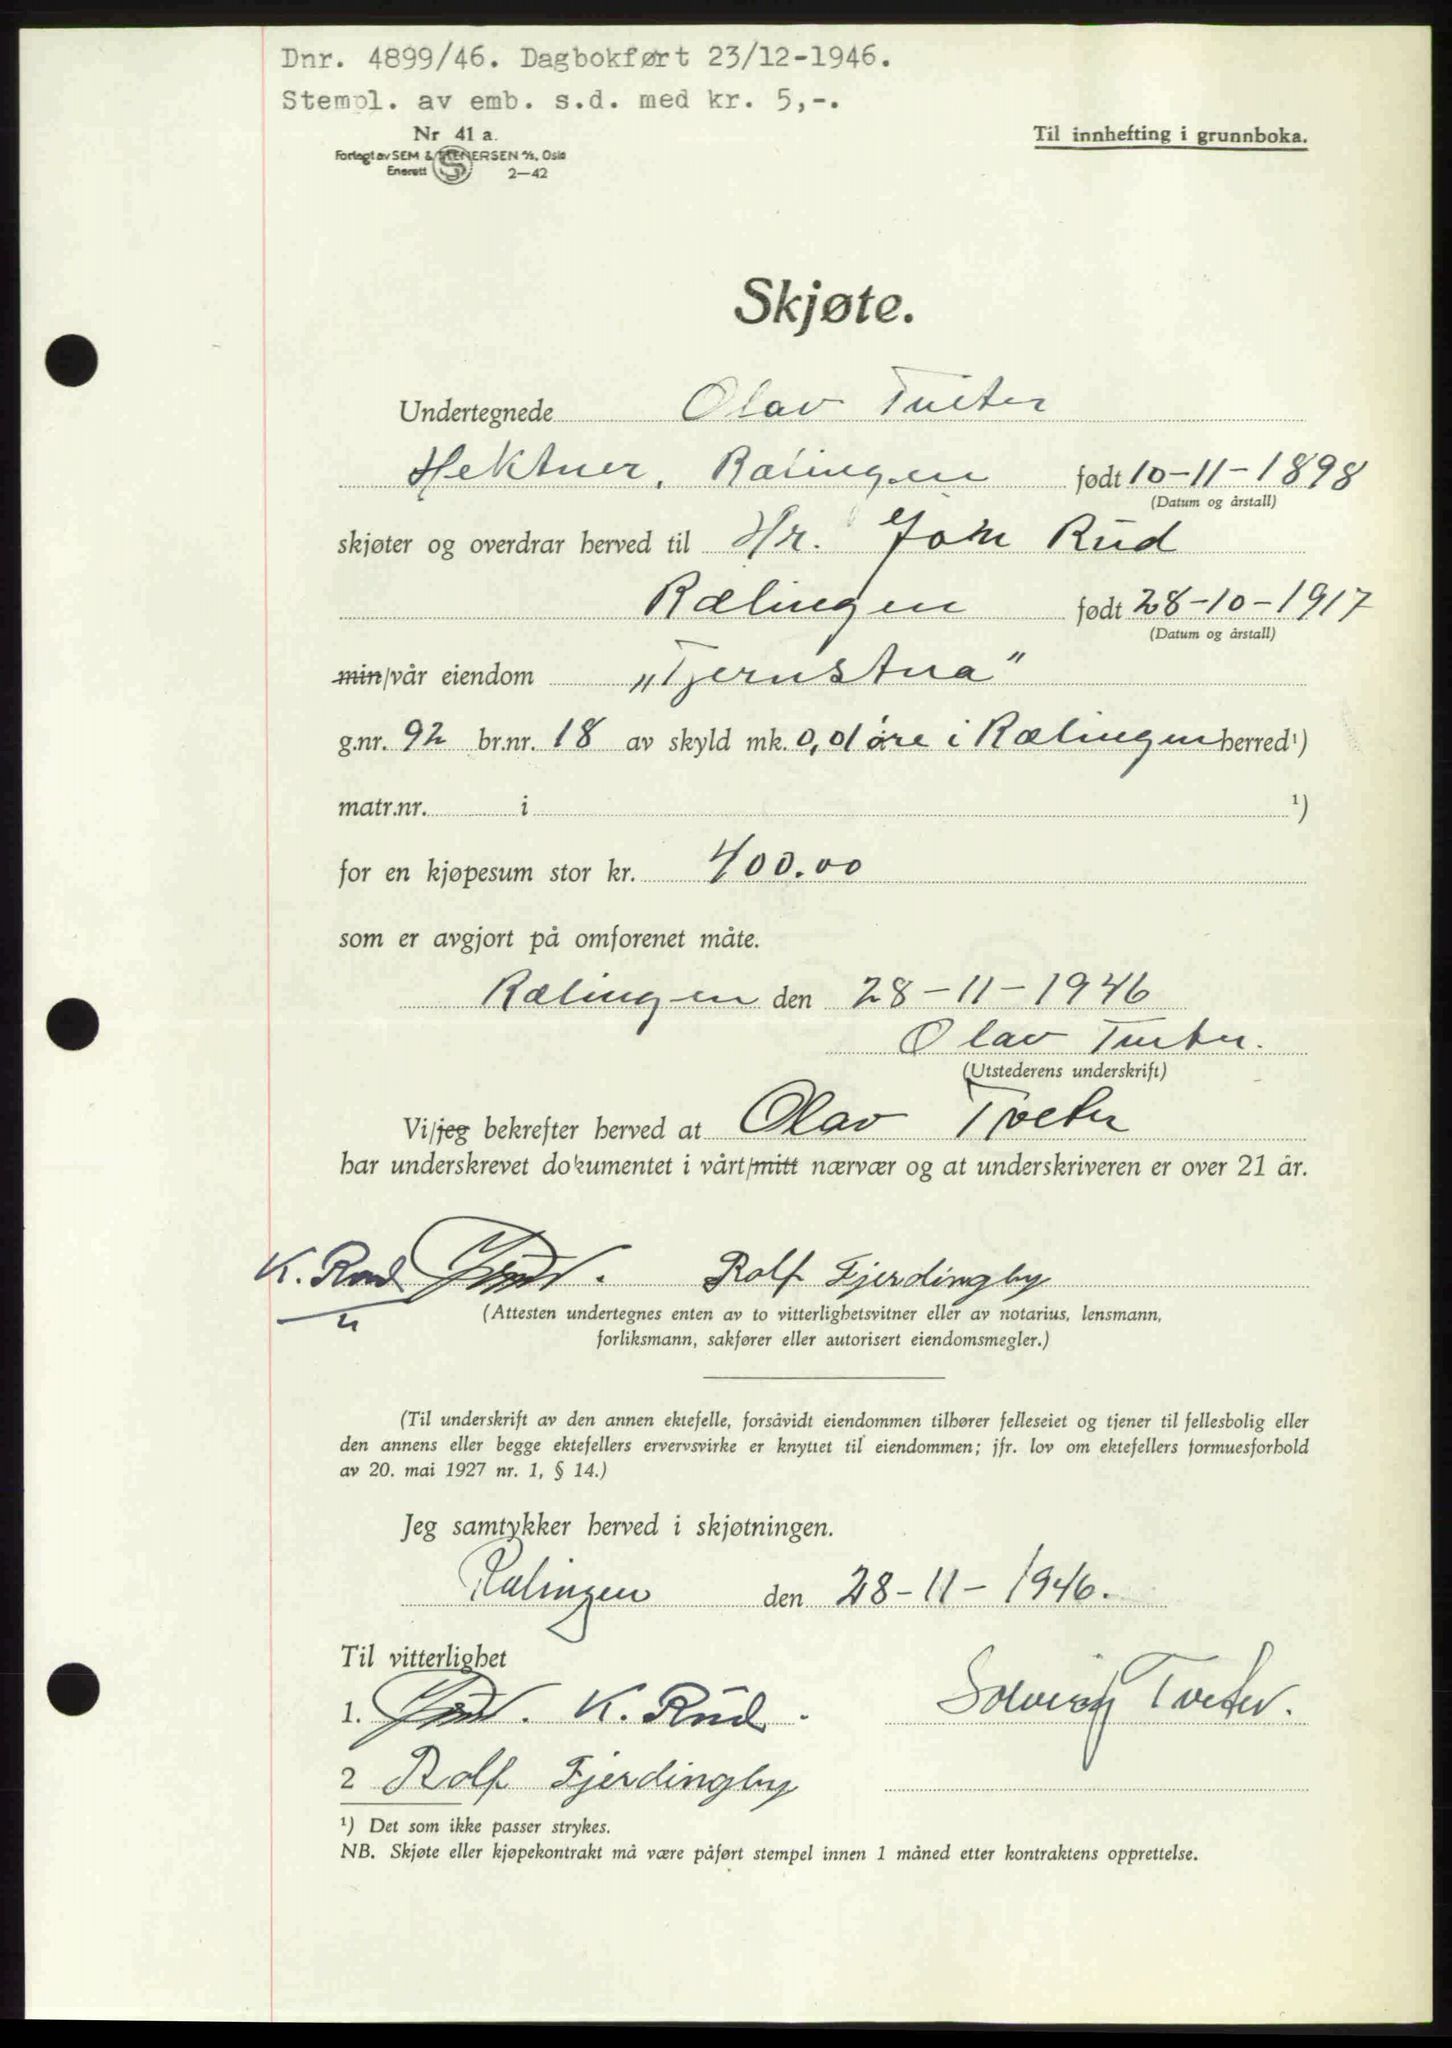 Dnr. 4899/46. Dagbokført 23/12-1946.
Stempl. av emb. s.d. med kr. 5,-.
Nr 41 a.
Forlagt av SEM & STENERSEN A/S, Oslo
Enerett 2—42
Til innhefting i grunnboka.
Skjøte.
Undertegnede Olav Tveter
Hektner, Rælingen født 10-11-1898
(Datum og årstall)
skjøter og overdrar herved til Hr. John Rud
Rælingen født 28-10-1917
(Datum og årstall)
min/vår eiendom „Tjernstua”
g.nr. 92 br.nr. 18 av skyld mk. 0,01 øre i Rælingen herred¹)
matr.nr. i ¹)
for en kjøpesum stor kr. 400.00
som er avgjort på omforenet måte.
Rælingen den 28-11-1946
Olav Tveter.
(Utstederens underskrift)
Vi/jeg bekrefter herved at Olav Tveter
har underskrevet dokumentet i vårt/mitt nærvær og at underskriveren er over 21 år.
K. Rud Rolf Fjerdingby
(Attesten undertegnes enten av to vitterlighetsvitner eller av notarius, lensmann,
forliksmann, sakfører eller autorisert eiendomsmegler.)
(Til underskrift av den annen ektefelle, forsåvidt eiendommen tilhører felleseiet og tjener til fellesbolig eller
den annens eller begge ektefellers ervervsvirke er knyttet til eiendommen; jfr. lov om ektefellers formuesforhold
av 20. mai 1927 nr. 1, § 14.)
Jeg samtykker herved i skjøtningen.
Rælingen den 28-11-1946.
Til vitterlighet
1. K. Rud. Solveig Tveter.
2 Rolf Fjerdingby
¹) Det som ikke passer strykes.
NB. Skjøte eller kjøpekontrakt må være påført stempel innen 1 måned etter kontraktens opprettelse.